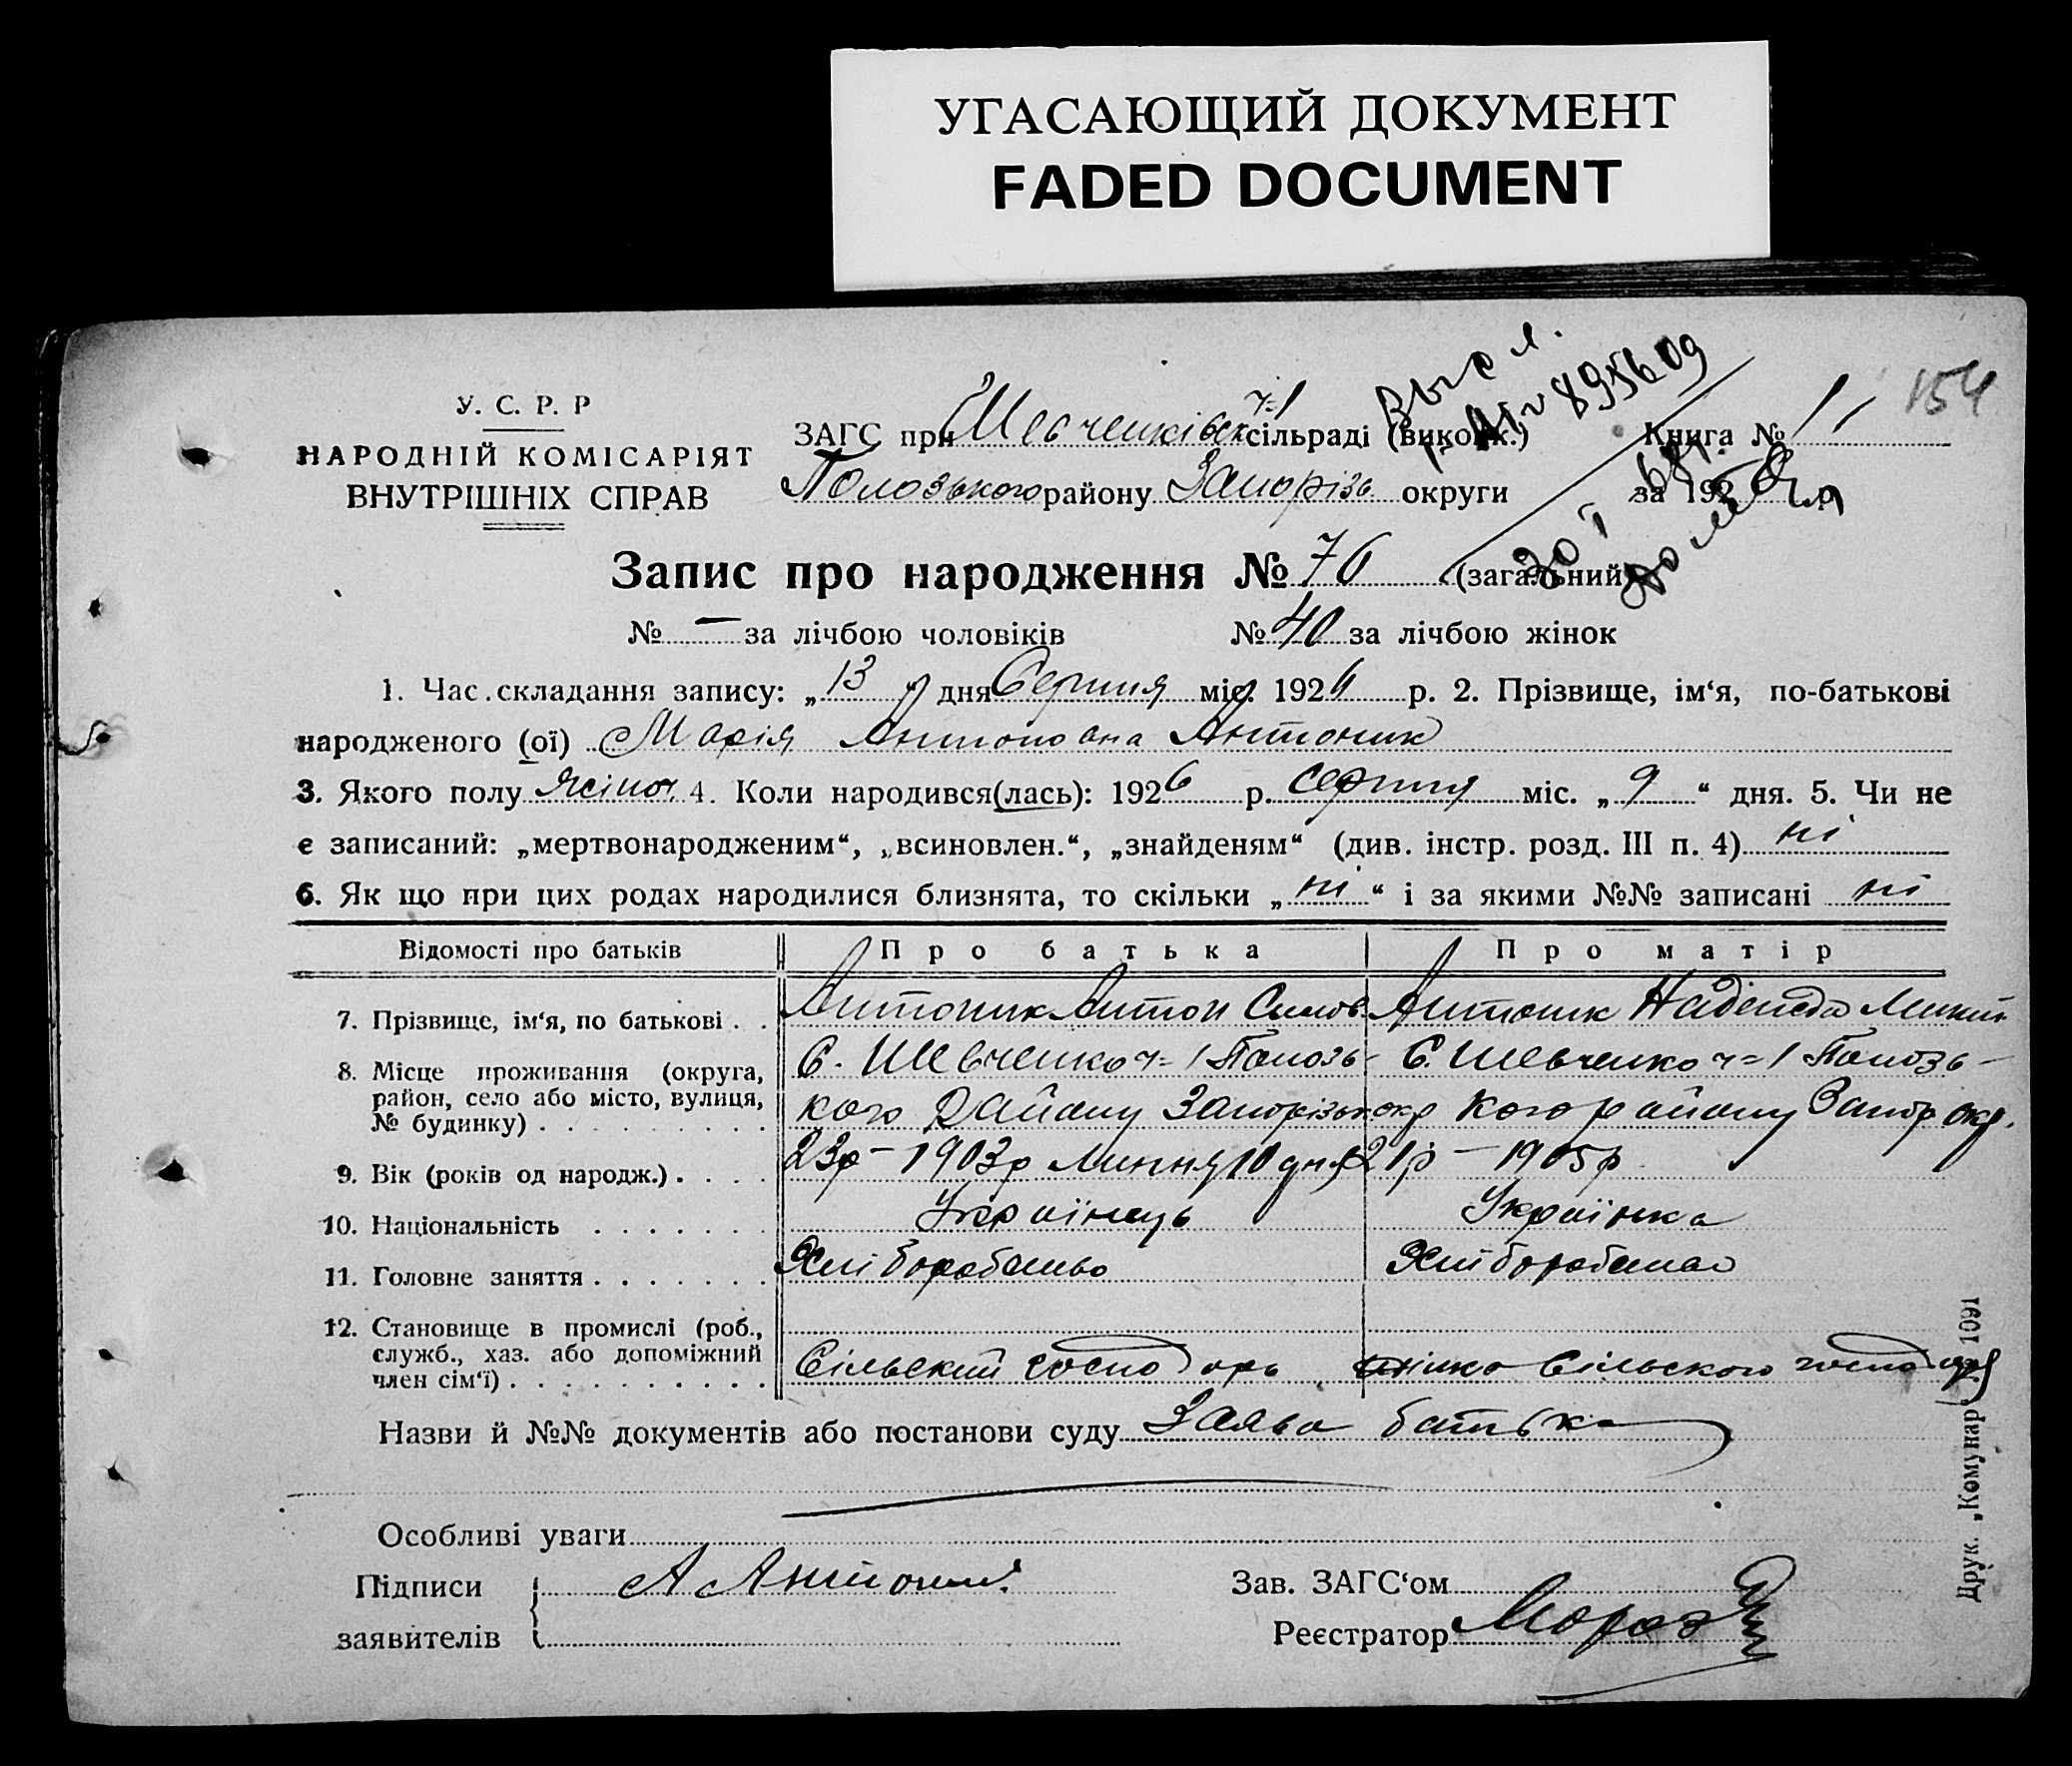 УГАСАЮЩИЙ ДОКУМЕНТ
FADED DOCUMENT
154
У. С. Р. Р
НАРОДНІЙ КОМІСАРІЯТ
ВНУТРІШНІХ СПРАВ
ЗАГС при Шевченківськ ч=1 сільраді (виконк.) Книга № 1
Полозького району Запорізь округи за 192 р.
895609
Запис про народження № 76 (загальний)
№ — за лічбою чоловіків № 40 за лічбою жінок
1. Час складання запису: „13“ дня Серпня міс. 1926 р. 2. Прізвище, ім‘я, по-батькові
народженого (ої) Марія Антоновна Антоник
3. Якого полу жіноч. 4. Коли народився(лась): 1926 р. серпня міс. „9“ дня. 5. Чи не
є записаний: „мертвонародженим“, „всиновлен.“, „знайденям“ (див. інстр. розд. III п. 4) ні
6. Як що при цих родах народилися близнята, то скільки „ні“ і за якими №№ записані ні
Відомості про батьків Про батька Про матір
7. Прізвище, ім‘я, по батькові . . Антоник Антон Антоник Надежда
8. Місце проживання (округа, район, село або місто, вулиця, № будинку) . . . . . . . . .
С. Шевченко ч=1 Полозь- С. Шевченко ч=1 Полозь-
кого Району Запорізьк окр кого району Запор окр.
9. Вік (років од народж.) . . . . 23р – 1903р Липня 10 дня 21р – 1905р
10. Національність . . . . . . . Українець Українка
11. Головне заняття . . . . . . . Хліборобство
12. Становище в промислі (роб., служб., хаз. або допоміжний член сім‘ї) . . . . . . . . . .
Сільский господарь жінка Сільского господаря
Назви й №№ документів або постанови суду Заява батька
Особливі уваги
Підписи А Антоник Зав. ЗАГС‘ом
заявителів Реєстратор Мороз
Друк. „Комунар“ 1091